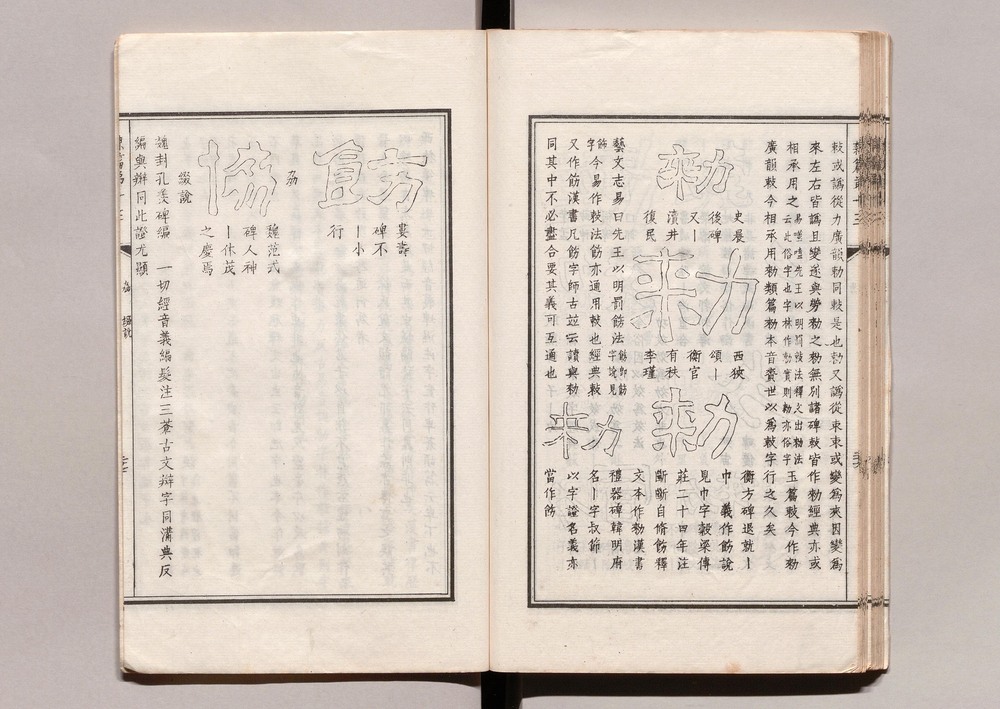 敕或譌從力廣韻勅同敕是也勑又譌從束束或變爲來因變爲
來左右皆譌且變遂與勞勑之勑無別諸碑敕皆作勑經典亦或
相承用之易噬嗑先王以明罰敕法釋文出勑法
云此俗字也字林作勅實則勑亦俗字
玉篇敕今作勑
廣韻敕今相承用勑類篇勑本音賚世以爲敕字行之久矣
勑
史晨
後碑
又丨
瀆井
復民
勑
西狹
頌丨
衡官
有秩
李瑾
勑
衡方碑退就丨
巾 義作飭說
見巾字穀梁傳
莊二十四年注
斷斷自脩飭釋
文本作勑漢書
藝文志易曰先王以明罰飭法
字今易作敕法飭亦通用敕也經典敕
又作飭漢書凡飭字師古竝云讀與勑
同其中不必盡合要其義可互通也
勑
禮器碑韓明府
名丨字叔節
以字證名義亦
當作飭
婁壽
碑不
丨小
行
劦
協
魏范式
碑人神
丨休茂
之慶焉
綴說
魏封孔羨碑編 一切經音義編髮注三蒼古文辮字同溝典反
編與辮同此證尤顯